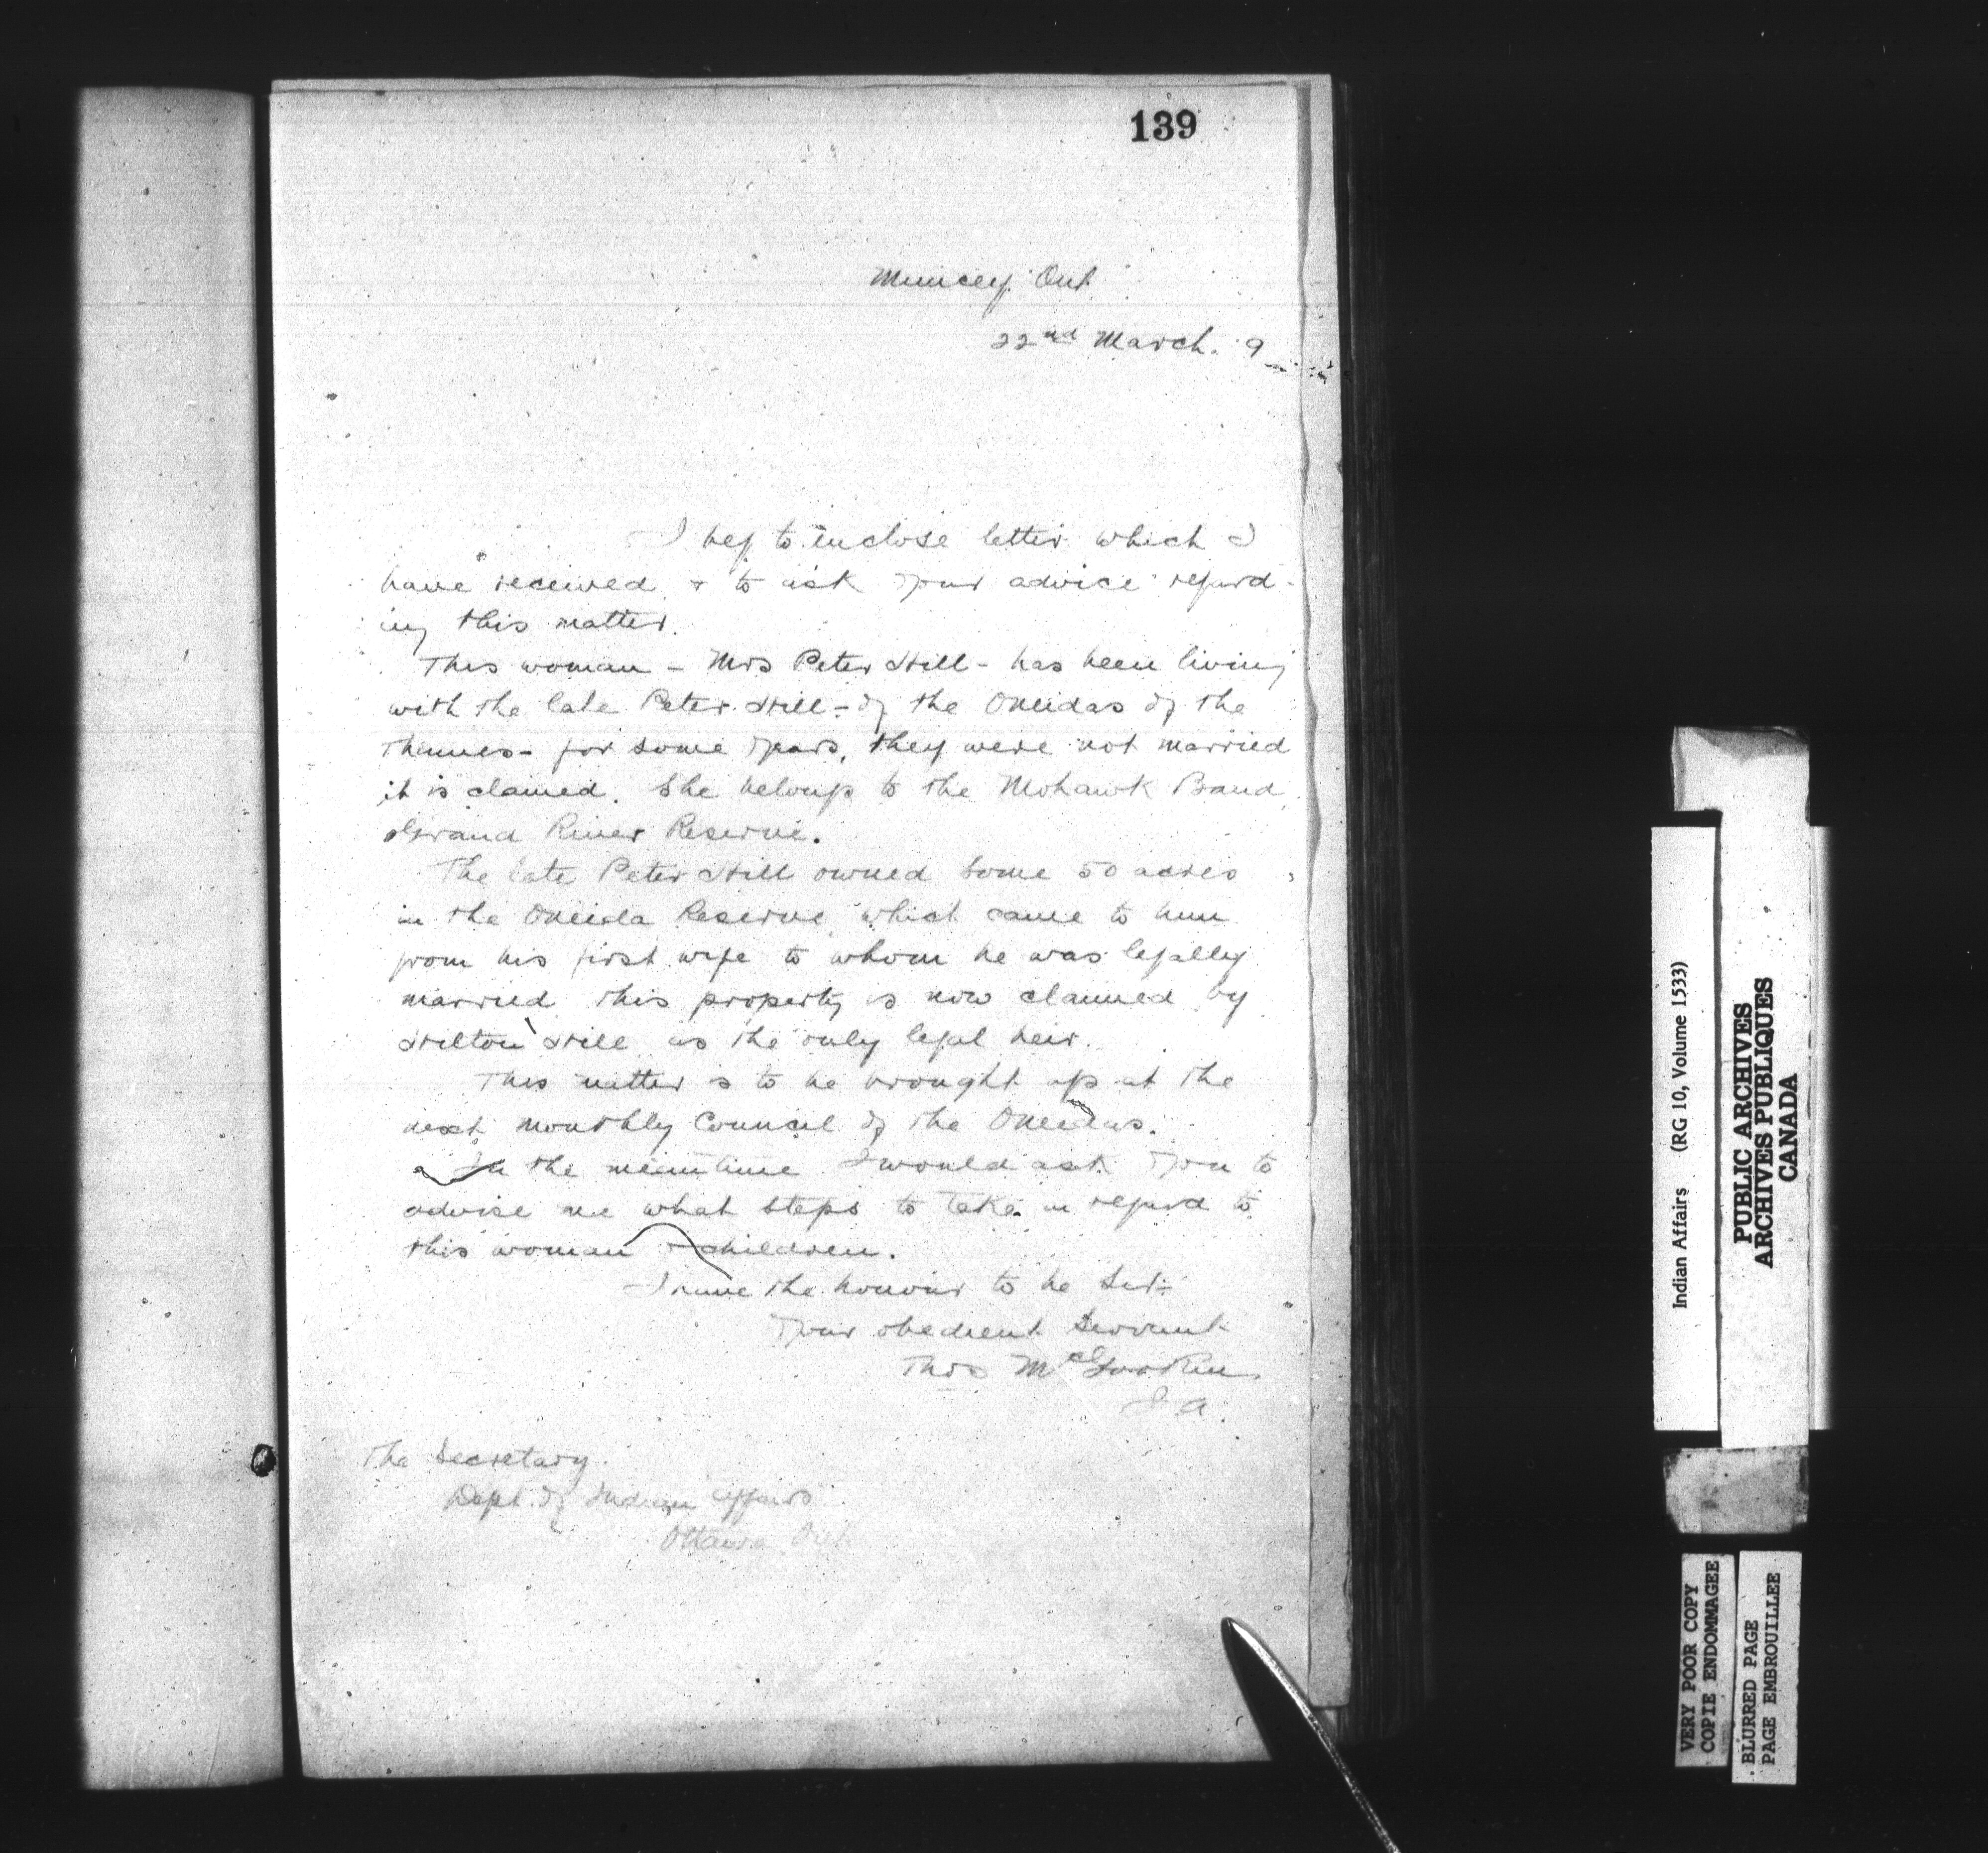 139
Muncey Ont
22nd March. 9
I beg to inclose letter which I
have received & to ask your advice regard-
ing this matter.
This woman - Mrs Peter Hill - has been living
with the late Peter Hill - of the Oneidas of the
Thames - for some years, they were not married
it is claimed. She belongs to the Mohawk Band
Grand River Reserve.
The late Peter Hill owned some 50 acres
in the Oneida Reserve which came to him
from his first wife to whom he was legally
married this property is now claimed by
Hilton Hill as the only legal heir.
This matter is to be brought up at the
next monthly Council of the Oneidas.
In the meantime I would ask you to
advise me what steps to take in regard to
this woman & children.
I have the honour to be Sir:
Your obedient Servant
Thos
I. A.
The Secretary
Dept. of Indian Affairs
Ottawa Ont.
Indian Affairs (RG 10, Volume 1533)
PUBLIC ARCHIVES
ARCHIVES PUBLIQUES
CANADA
VERY POOR COPY
COPIE ENDOMMAGEE
BLURRED PAGE
PAGE EMBROUILLEE